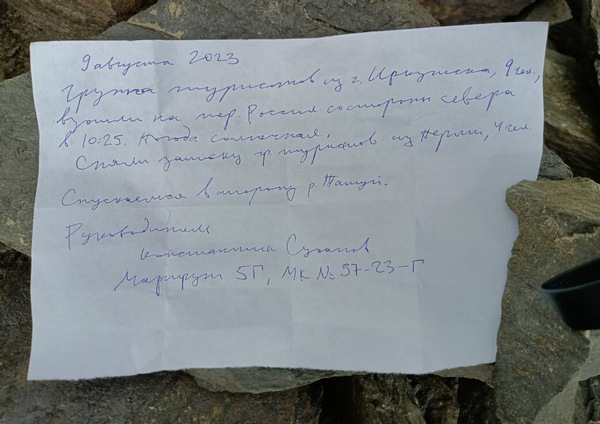 9 августа 2023
Группа туристов из г. Иркутска, 9 чел.,
взошли на пер. Россия со стороны севера
в 10:25. Погода солнечная.
Сняли записку гр. туристов из Перми, 4 чел.
Спускаемся в сторону р.
Руководитель
Константин Суханов
Маршрут 5Г, МК № 57-23-Г